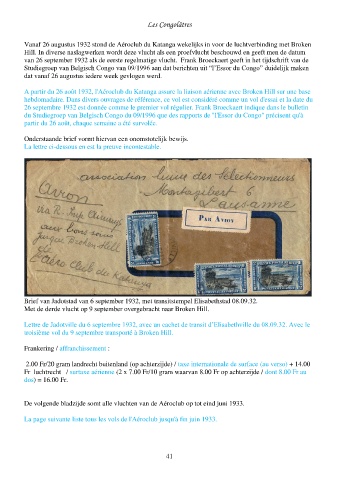 Les Congolâtres
Vanaf 26 augustus 1932 stond de Aéroclub du Katanga wekelijks in voor de luchtverbinding met Broken
Hill. In diverse naslagwerken wordt deze vlucht als een proefvlucht beschouwd en geeft men de datum
van 26 september 1932 als de eerste regelmatige vlucht. Frank Broeckaert geeft in het tijdschrift van de
Studiegroep van Belgisch Congo van 09/1996 aan dat berichten uit "l'Essor du Congo" duidelijk maken
dat vanaf 26 augustus iedere week gevlogen werd.
A partir du 26 août 1932, l'Aéroclub du Katanga assura la liaison aérienne avec Broken Hill sur une base
hebdomadaire. Dans divers ouvrages de référence, ce vol est considéré comme un vol d'essai et la date du
26 septembre 1932 est donnée comme le premier vol régulier. Frank Broeckaert indique dans le bulletin
du Studiegroep van Belgisch Congo du 09/1996 que des rapports de "l'Essor du Congo" précisent qu'à
partir du 26 août, chaque semaine a été survolée.
Onderstaande brief vormt hiervan een onomstotelijk bewijs.
La lettre ci-dessous en est la preuve incontestable.
association suisse des Sélectionneurs
Montagibert 6
Lausanne
Avion
via B.
aux bons soins
jusque Broken Hill
Aéro Club du Katanga
PAR AVION
Brief van Jadotstad van 6 september 1932, met transitstempel Elisabethstad 08.09.32.
Met de derde vlucht op 9 september overgebracht naar Broken Hill.
Lettre de Jadotville du 6 septembre 1932, avec un cachet de transit d'Elisabethville du 08.09.32. Avec le
troisième vol du 9 septembre transporté à Broken Hill.
Frankering / affranchissement :
2.00 Fr/20 gram landrecht buitenland (op achterzijde) / taxe internationale de surface (au verso) + 14.00
Fr luchtrecht / surtaxe aérienne (2 x 7.00 Fr/10 gram waarvan 8.00 Fr op achterzijde / dont 8.00 Fr au
dos) = 16.00 Fr.
De volgende bladzijde somt alle vluchten van de Aéroclub op tot eind juni 1933.
La page suivante liste tous les vols de l'Aéroclub jusqu'à fin juin 1933.
41